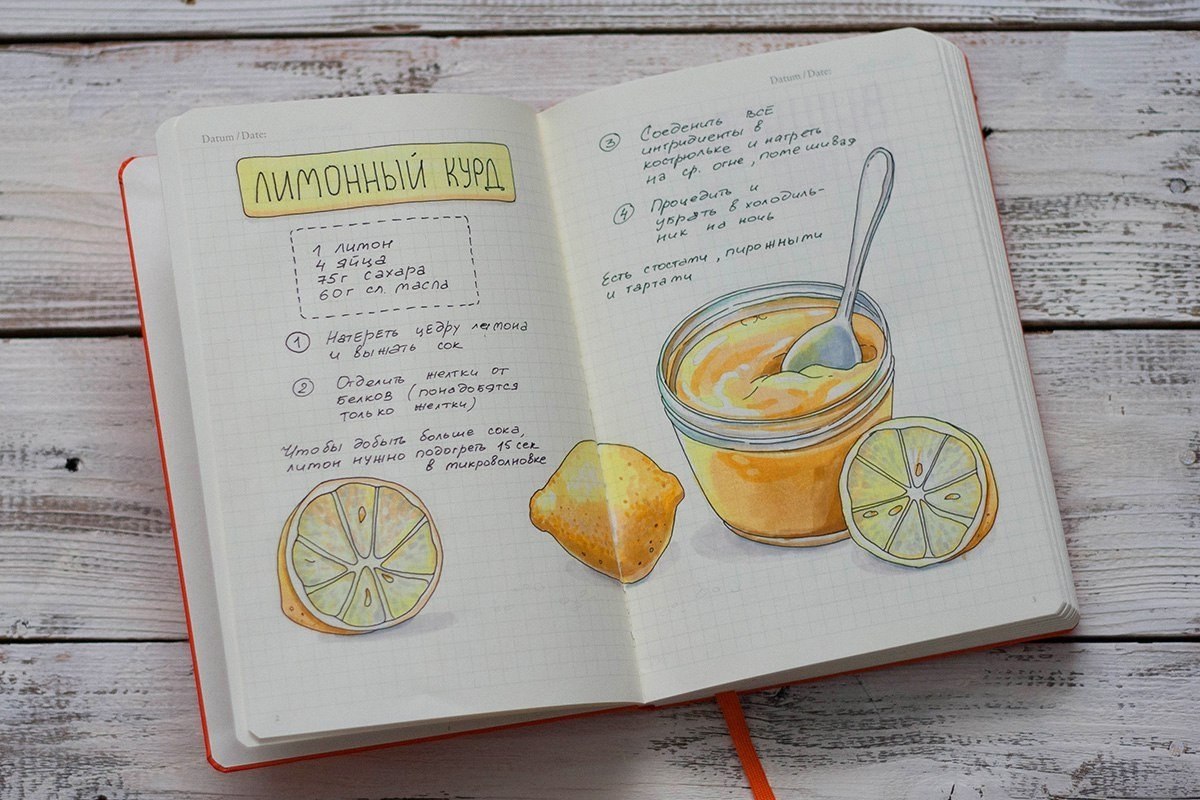 Datum / Date:
ЛИМОННЫЙ КУРД
1 лимон
4 яйца
75г сахара
60г сл. масла
1 Натереть цедру лемона
и выжать сок
2 Отделить желтки от
белков (понадобятся
только желтки)
Чтобы добыть больше сока,
лимон нужно подогреть 15 сек
в микроволновке
Datum / Date:
3 Соеденить все
интридиенты в
кострюльке и нагреть
на ср. огне, помешивая
4 Процедить и
убрать в холодиль-
ник на ночь
Есть стостами, пирожными
и тартами